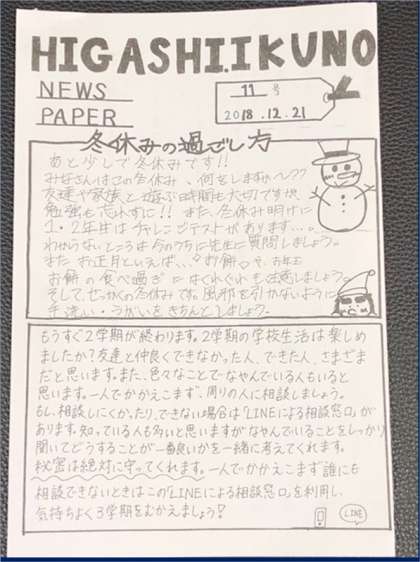 HIGASHI.IKUNO
NEWS
PAPER
11 号
2018.12.21
冬休みの過ごし方
あと少しで冬休みです!!
みなさんはこの冬休み、何をしますか?
友達や家族と遊ぶ時間も大切ですが、
勉強も忘れずに!! また、冬休み明けに
1・2年生はチャレンジテストがあります…。
わからないところは今のうちに先生に質問しましょう。
また、お正月といえば、、お餅
お餅の食べ過ぎにはくれぐれも注意しましょう。
そして、せっかくの冬休みです。風邪を引かないように
手洗い・うがいをきちんとしましょう。
もうすぐ2学期が終わります。2学期の学校生活は楽しめ
ましたか?友達と仲良くできなかった人、できた人、さまざま
だと思います。また、色々なことでなやんでいる人もいると
思います。一人でかかえこまず、周りの人に相談しましょう。
もし、相談しにくかったり、できない場合は「LINEによる相談窓口」が
あります。知っている人も多いと思いますがなやんでいることをしっかり
聞いてどうすることが一番良いかを一緒に考えてくれます。
秘密は絶対に守ってくれます。一人でかかえこまず誰にも
相談できないときはこの「LINEによる相談窓口」を利用し、
気持ちよく3学期をむかえましょう!
LINE